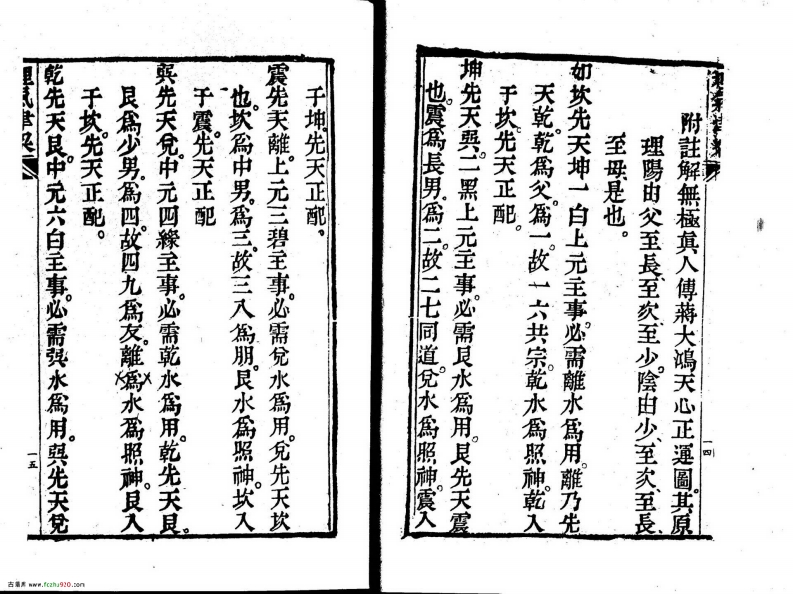 附註解無極真人傳蔣大鴻天心正運圖其原
理陽由父至長至次至少陰由少至次至長
至母是也。
如坎先天坤一白上元主事必需離水爲用。離乃先
天乾。乾爲父爲一。故一六共宗。乾水爲照神。乾入
于坎。先天正配。
坤先天巽。二黑上元主事必需艮水爲用。艮先天震
也。震爲長男。爲二。故二七同道。兌水爲照神。震入
一四
于坤。先天正配。
震先天離。上元三碧主事。必需兌水爲用。兌先天坎
也。坎爲中男。爲三。故三八爲朋。艮水爲照神。坎入
于震。先天正配
巽先天兌。中元四綠主事必需乾水爲用。乾先天艮。
艮爲少男。爲四。故四九爲友。離爲水爲照神。艮入
于坎。先天正配。
乾先天艮。中元六白主事。必需巽水爲用。巽先天兌
一五
古易库 www.fczhu920.com